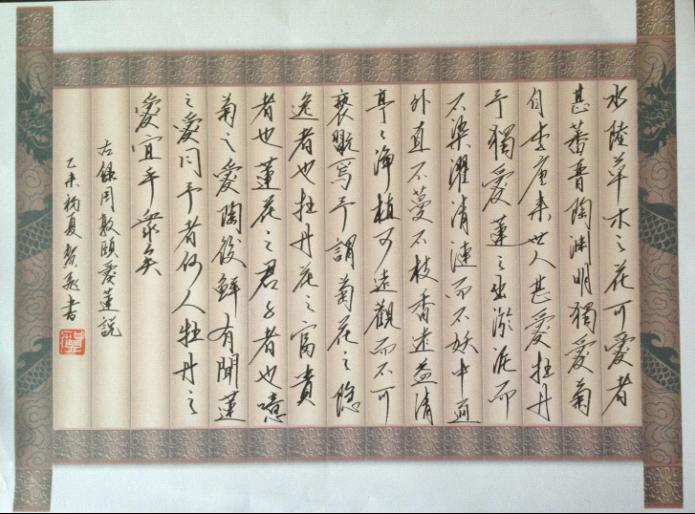 水陸草木之花可愛者
甚蕃晋陶渊明獨愛菊
自李唐来世人甚愛牡丹
予獨愛蓮之出淤泥而
不染濯清漣而不妖中通
外直不蔓不枝香遠益清
亭々净植可遠觀而不可
褻翫焉予謂菊花之隐
逸者也牡丹花之富貴
者也蓮花之君子者也噫
菊之愛陶後鲜有聞蓮
之愛同予者何人牡丹之
愛宜乎衆矣
右録周敦頤愛蓮説
乙未初夏 書